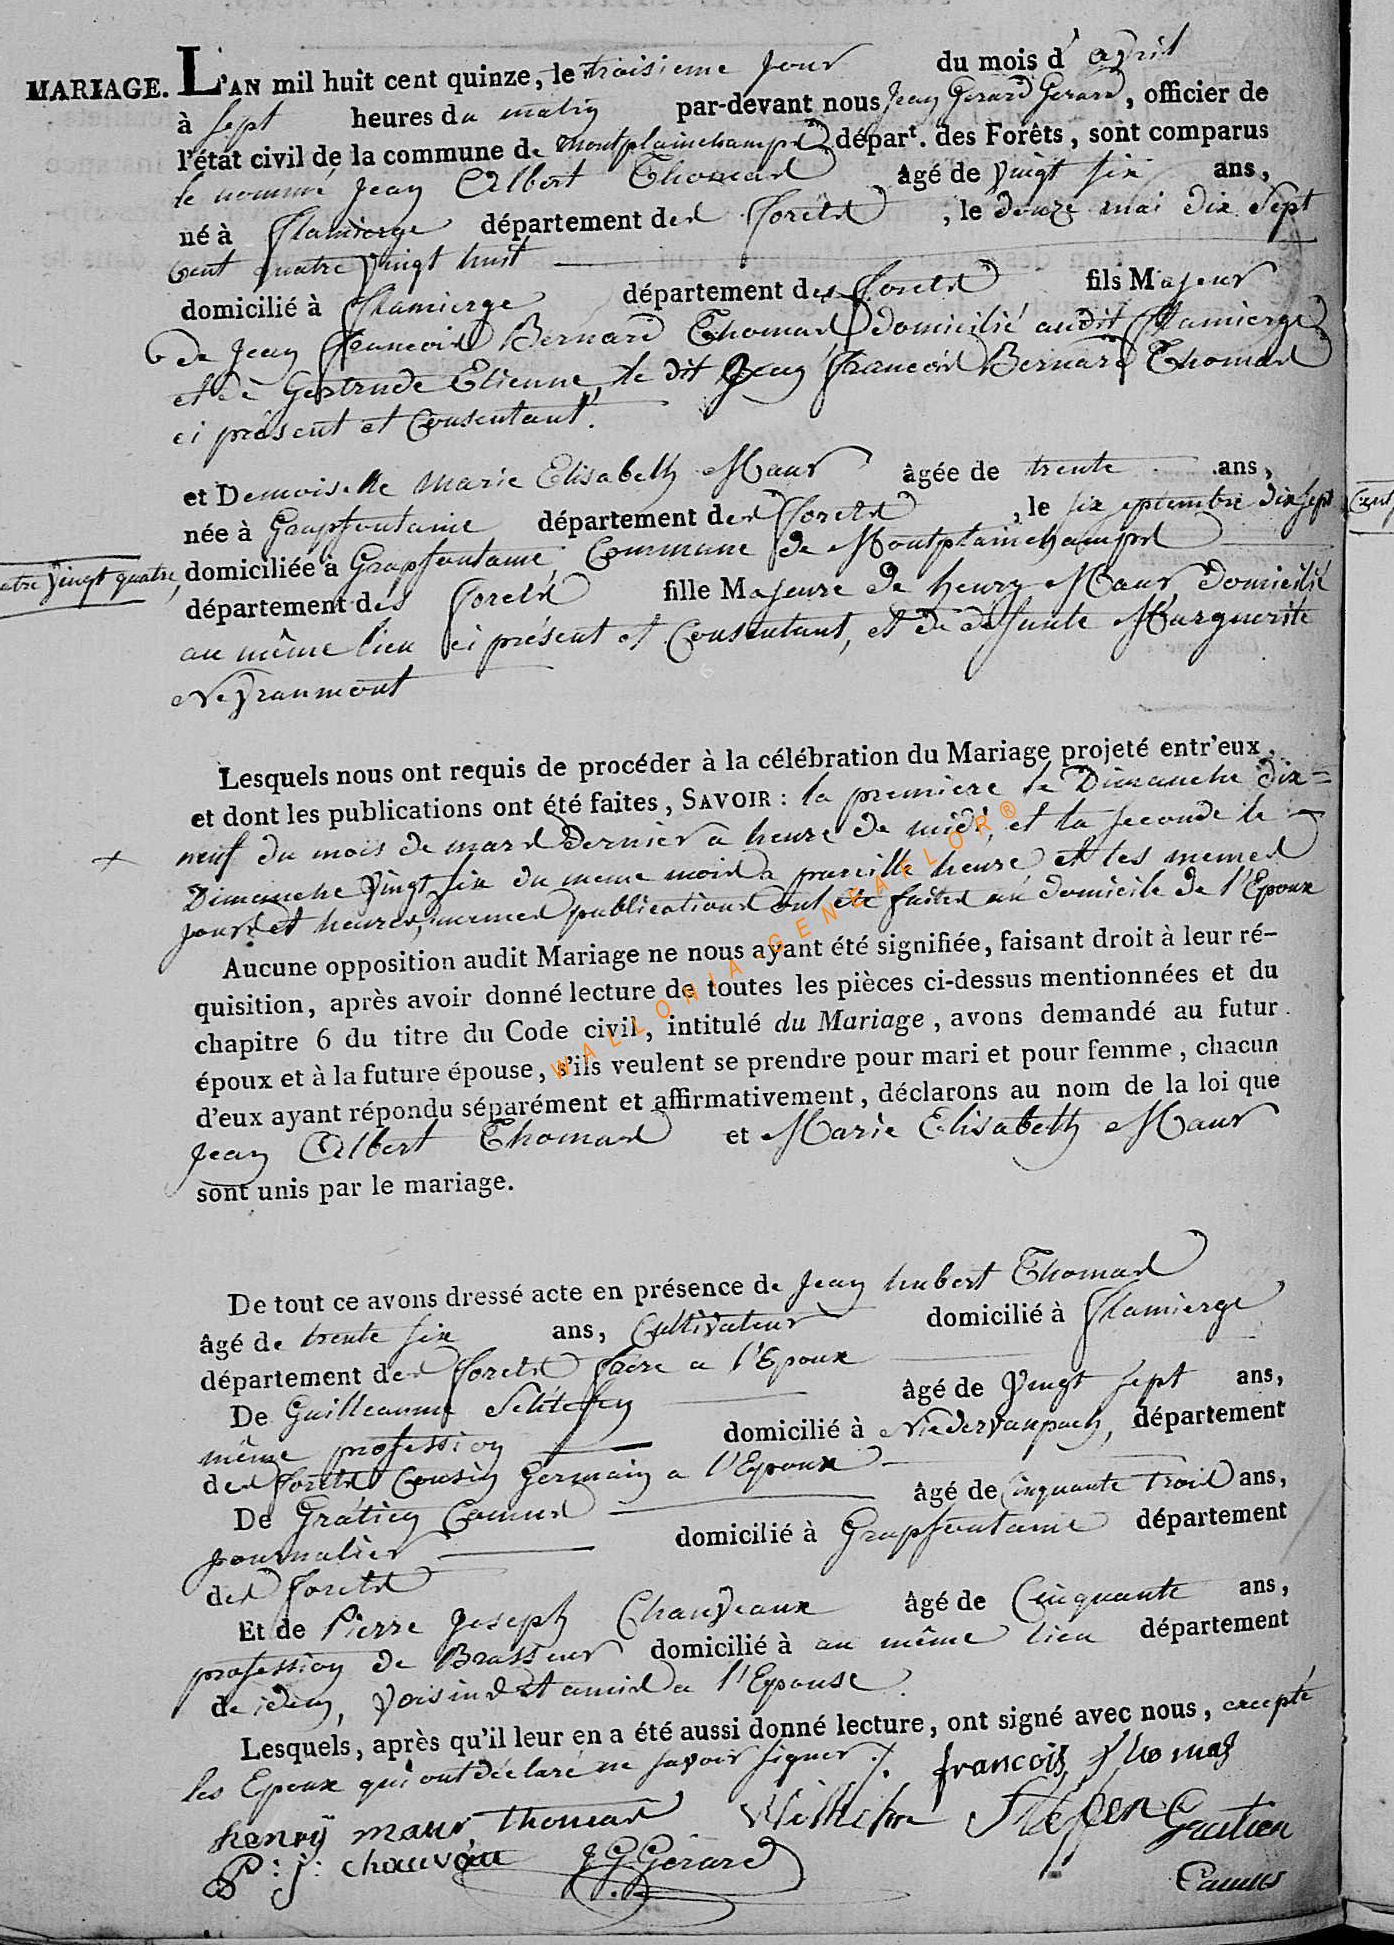 MARIAGE. L'AN mil huit cent quinze, le troisieme jour du mois d'avril
à sept heures du matin par-devant nous Jean Gerard Gerard, officier de
l'état civil de la commune de Montplainchamps départ. des Forêts, sont comparus
le nommé Jean Albert Thomas âgé de vingt six ans,
né à Flamierge département des Forêts, le douze mai dix sept
cent quatre vingt huit
domicilié à Flamierge département des Forêts fils Majeur
de Jean François Bernard Thomas domicilié audit Flamierge
et de Gertrude Etienne, le dit Jean François Bernard Thomas
ci présent et Consentant.
et Demoiselle Marie Elisabeth Maur âgée de trente ans,
née à Grapfontaine département des Forêts, le six septembre dix sept Cent
domiciliée à Grapfontaine Commune de Montplainchamps
atre vingt quatre, département des Forêts fille Majeure de henry Maur, domicilié
au même lieu ci présent et Consentant, et de défunte Marguerite
Neyraumont
Lesquels nous ont requis de procéder à la célébration du Mariage projeté entr'eux,
et dont les publications ont été faites, SAVOIR : la premiere le Dimanche dix=
neuf du mois de mars dernier a heure de midi et la seconde le
Dimanche vingt six du meme mois a pareille heure, et les memes
jours et heures, memes publications ont été faites au domicile de l'Epoux
Aucune opposition audit Mariage ne nous ayant été signifiée, faisant droit à leur ré-
quisition, après avoir donné lecture de toutes les pièces ci-dessus mentionnées et du
chapitre 6 du titre du Code civil, intitulé du Mariage, avons demandé au futur
époux et à la future épouse, s'ils veulent se prendre pour mari et pour femme, chacun
d'eux ayant répondu séparément et affirmativement, déclarons au nom de la loi que
Jean Albert Thomas et Marie Elisabeth Maur
sont unis par le mariage.
WALLONIA GENEAFLOR®
De tout ce avons dressé acte en présence de Jean hubert Thomas
âgé de trente six ans, Cultivateur domicilié à Flamierge
département des Forêts frere a l'Epoux
De Guillaume Schteffen âgé de Vingt sept ans,
même profession domicilié à Niederwanpach, département
des Forêts Cousin Germain a l'Epoux
De Gratien Camus âgé de Cinquante trois ans,
journalier domicilié à Grapfontaine département
des Forêts
Et de Pierre Joseph Chauveaux âgé de Cinquante ans,
profession de Brasseur domicilié à au même lieu département
de idem, voisins et amis a l'Epouse.
Lesquels, après qu'il leur en a été aussi donné lecture, ont signé avec nous, excepté
les Epoux qui ont déclaré ne savoir signer ./. francois thomas
henry maur Thomas Wilhelm Steffen Gratien
P: j: chauvau J G Gérard Camus